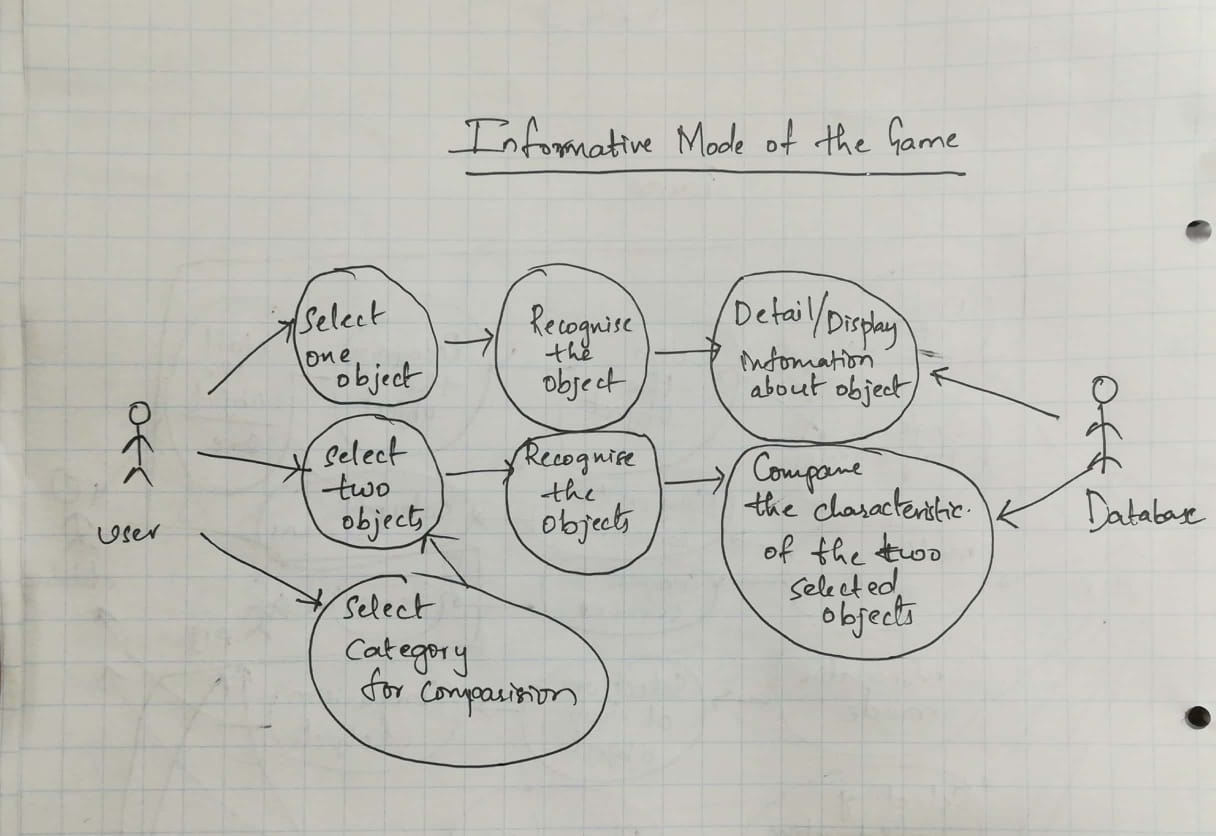 Informative Mode of the Game
Select
one
object
Recognise
the
object
Detail/Display
Infomation
about object
User
Select
two
objects
Recognise
the
objects
Compare
the characteristic.
of the two
selected
objects
Database
Select
Category
for Compasision